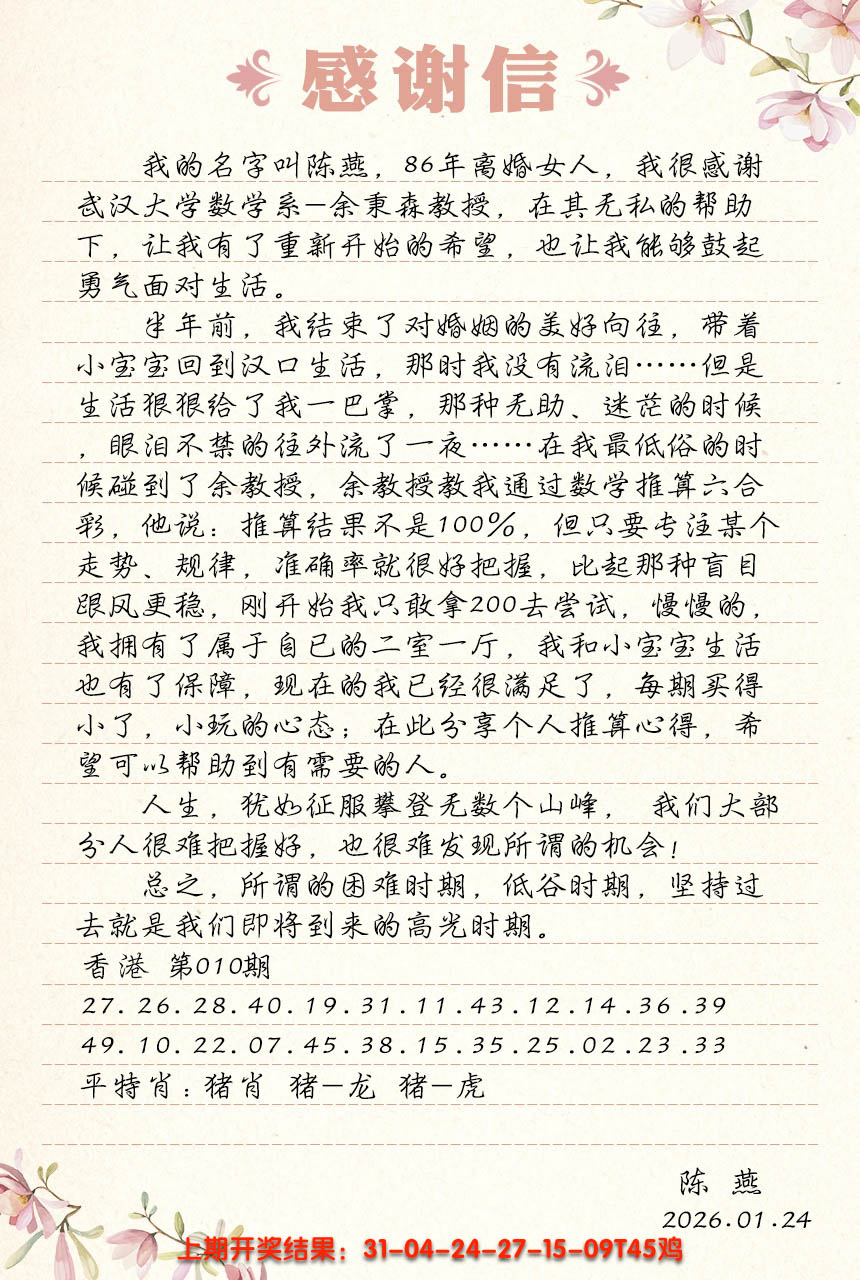 感谢信
我的名字叫陈燕，86年离婚女人，我很感谢
武汉大学数学系—余秉森教授，在其无私的帮助
下，让我有了重新开始的希望，也让我能够鼓起
勇气面对生活。
半年前，我结束了对婚姻的美好向往，带着
小宝宝回到汉口生活，那时我没有流泪……但是
生活狠狠给了我一巴掌，那种无助、迷茫的时候
，眼泪不禁的往外流了一夜……在我最低俗的时
候碰到了余教授，余教授教我通过数学推算六合
彩，他说：推算结果不是100%，但只要专注某个
走势、规律，准确率就很好把握，比起那种盲目
跟风更稳，刚开始我只敢拿200去尝试，慢慢的，
我拥有了属于自已的二室一厅，我和小宝宝生活
也有了保障，现在的我已经很满足了，每期买得
小了，小玩的心态；在此分享个人推算心得，希
望可以帮助到有需要的人。
人生，犹如征服攀登无数个山峰， 我们大部
分人很难把握好，也很难发现所谓的机会！
总之，所谓的困难时期，低谷时期，坚持过
去就是我们即将到来的高光时期。
香港 第010期
27.26.28.40.19.31.11.43.12.14.36.39
49.10.22.07.45.38.15.35.25.02.23.33
平特肖：猪肖 猪—龙 猪—虎
陈 燕
2026.01.24
上期开奖结果：31-04-24-27-15-09T45鸡